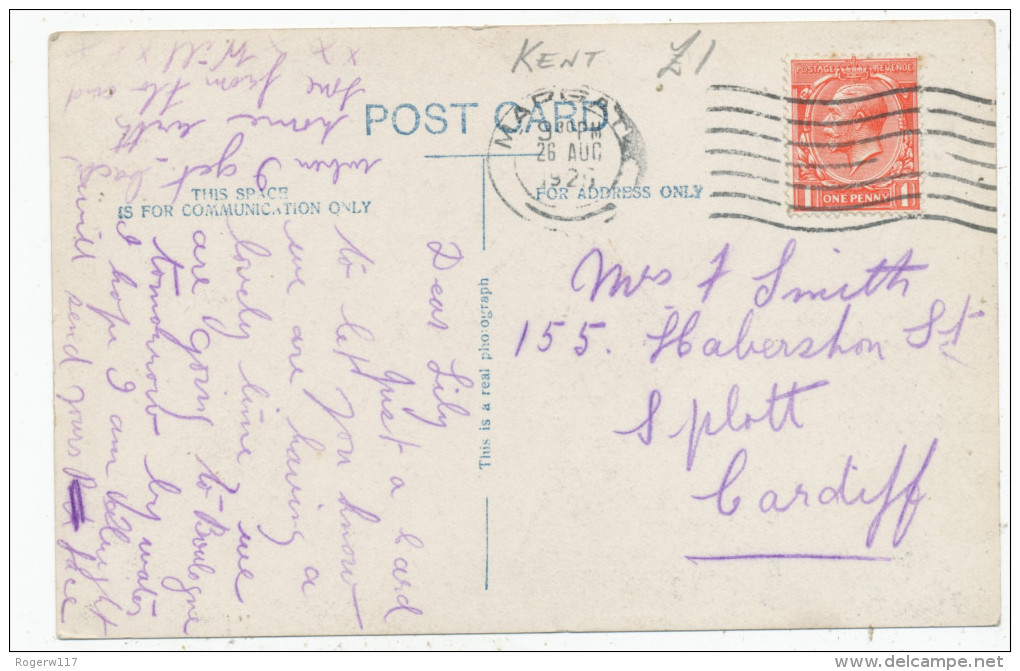 KENT £1
POST CARD
MARGATE
9 30 PM
26 AUG
192
POSTAGE REVENUE
1 ONE PENNY 1
THIS SPACE
IS FOR COMMUNICATION ONLY
FOR ADDRESS ONLY
This is a real photograph
Dear Lily
Just a Card
to let you know
we are having a
lovely time we
are going to Boulogne
tomorrow by water
I hope I am allright
will send yours
when I get back
home with
from the
Will
x x x x
Mrs F Smith
155. Habershon St
Splott
Cardiff
Rogerw117
delcampe.net